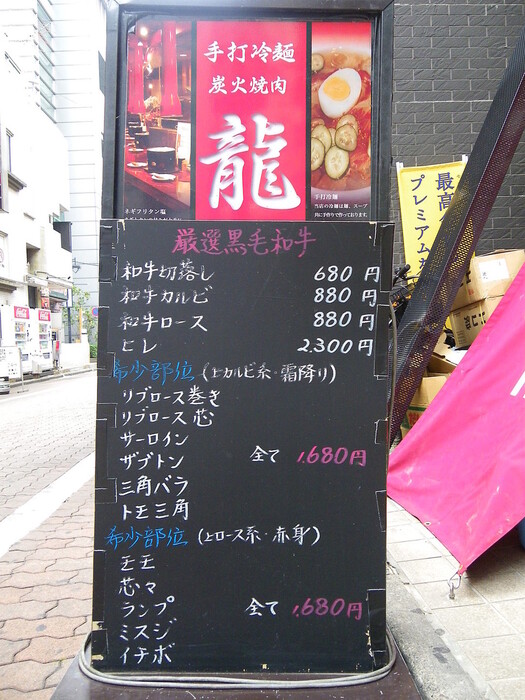 手打冷麺
炭火焼肉
龍
ネギフリタン塩
手打冷麺
厳選黒毛和牛
和牛切落し 680円
和牛カルビ 880円
和牛ロース 880円
ヒレ 2.300円
希少部位 (上カルビ系・霜降り)
リブロース巻き
リブロース芯
サーロイン
ザブトン 全て 1,680円
三角バラ
トモ三角
希少部位 (上ロース系・赤身)
芯々
ランプ 全て 1,680円
ミスジ
イチボ
最高
プレミアム